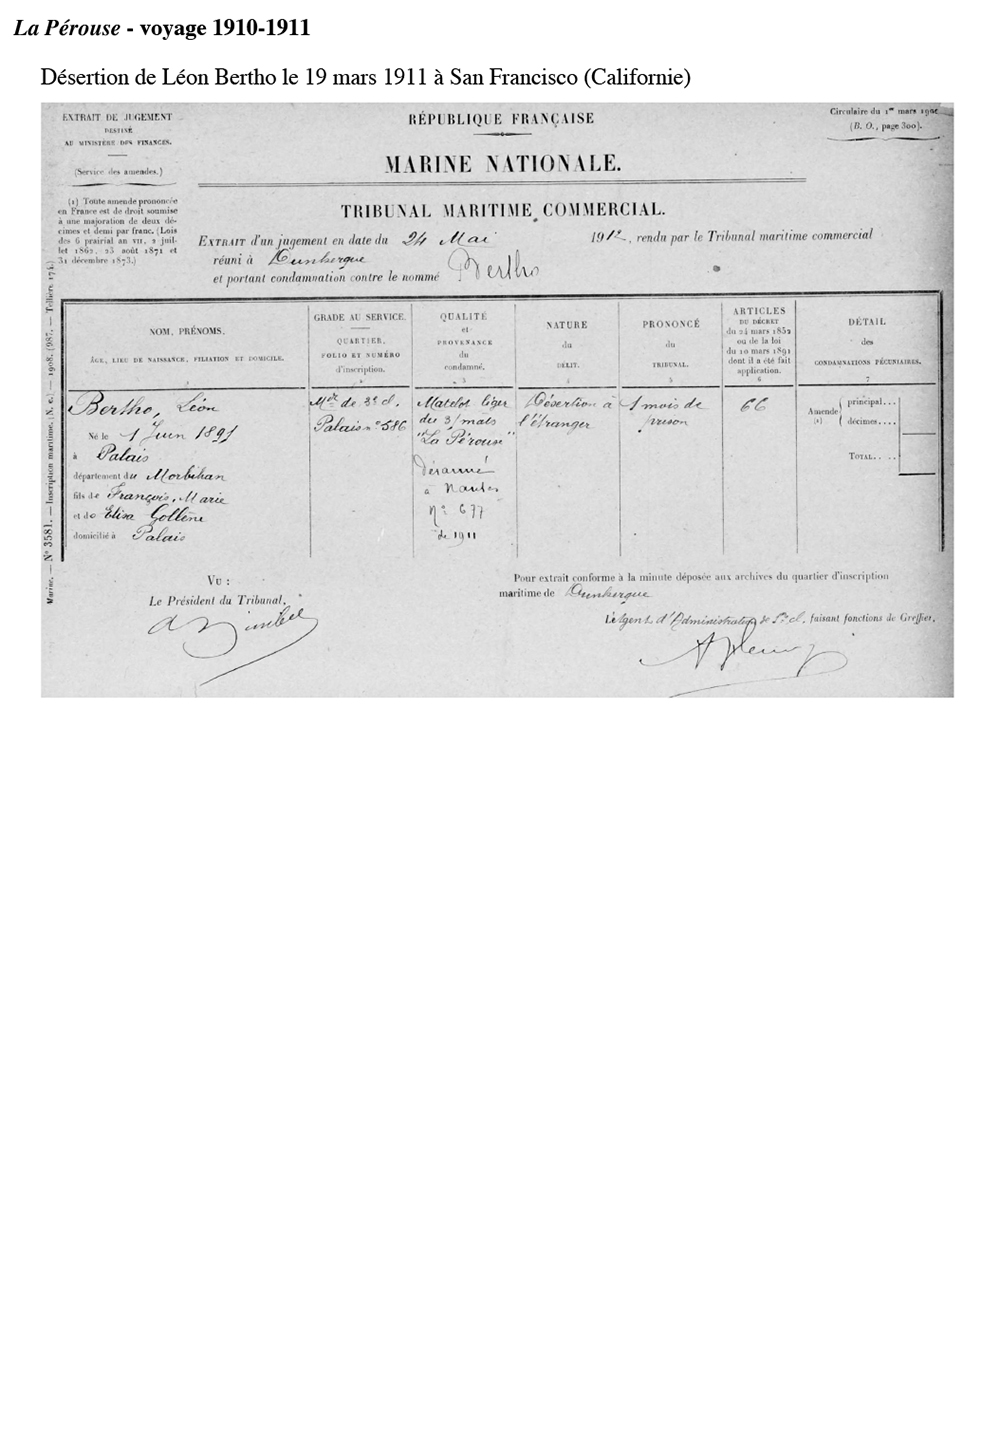 La Pérouse - voyage 1910-1911
Désertion de Léon Bertho le 19 mars 1911 à San Francisco (Californie)
EXTRAIT DE JUGEMENT
DESTINÉ
AU MINISTÈRE DES FINANCES.
(Service des amendes.)
(1) Toute amende prononcée
en France est de droit soumise
à une majoration de deux dé-
cimes et demi par franc. (Lois
des 6 prairial an VII, 2 juil-
let 1862, 23 août 1871 et
31 décembre 1873.)
RÉPUBLIQUE FRANÇAISE
MARINE NATIONALE.
Circulaire du 1er mars
(B. O., page 300).
TRIBUNAL MARITIME COMMERCIAL.
EXTRAIT d'un jugement en date du 24 Mai 1912, rendu par le Tribunal maritime commercial
réuni à Dunkerque
et portant condamnation contre le nommé Bertho
NOM, PRÉNOMS,
ÂGE, LIEU DE NAISSANCE, FILIATION ET DOMICILE.
1
GRADE AU SERVICE.
QUARTIER,
FOLIO ET NUMÉRO
d'inscription.
2
QUALITÉ
et
PROVENANCE
du
condamné.
3
NATURE
du
DÉLIT.
4
PRONONCÉ
du
TRIBUNAL.
5
ARTICLES
DU DÉCRET
du 24 mars 1852
ou de la loi
du 10 mars 1891
dont il a été fait
application.
6
DÉTAIL
des
CONDAMNATIONS PÉCUNIAIRES.
7
Bertho, Léon
Né le 1 Juin 1891
à Palais
département du Morbihan
fils de François, Marie
et de Elisa Gollène
domicilié à Palais
Mot de 3e cl.
Palais no 586
Matelot léger
du 3/mats
"La Pérouse"
Désarmé
à Nantes
No 677
de 1911
Désertion à
l'étranger
1 mois de
prison
66
Amende
(1)
principal...
décimes....
TOTAL....
Marine. — No 3581. — Inscription maritime. (N. c.) — 1908. (987. — Tellière 174.)
Vu :
Le Président du Tribunal,
Pour extrait conforme à la minute déposée aux archives du quartier d'inscription
maritime de Dunkerque
L'Agent d'Administration de cl. faisant fonctions de Greffier,